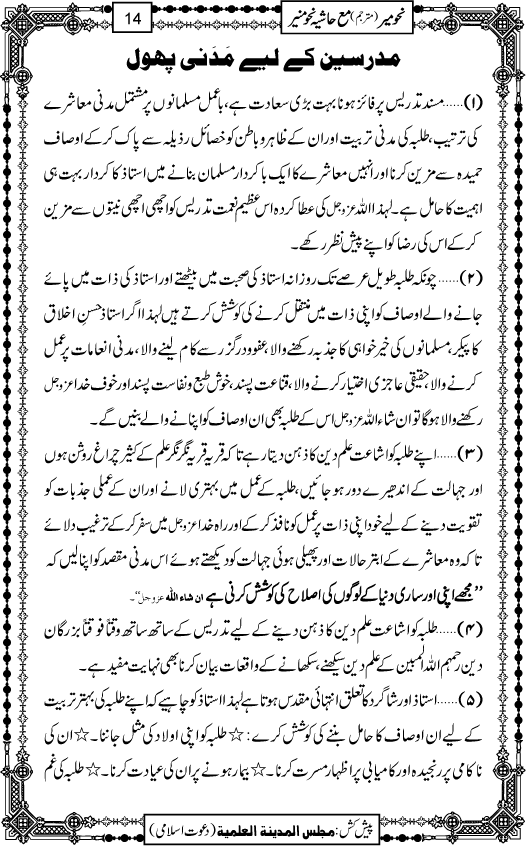 نحومیر (مترجم) مع حاشیہ نحو منیر
14
مدرسین کے لیے مَدَنی پھول
(۱)......مسند تدریس پر فائز ہونا بہت بڑی سعادت ہے، باعمل مسلمانوں پر مشتمل مدنی معاشرے
کی ترتیب، طلبہ کی مدنی تربیت اور ان کے ظاہر و باطن کو خصائل رذیلہ سے پاک کر کے اوصاف
حمیدہ سے مزین کرنا اور انہیں معاشرے کا ایک باکردار مسلمان بنانے میں استاذ کا کردار بہت ہی
اہمیت کا حامل ہے۔ لہذا اللہ عزوجل کی عطا کردہ اس عظیم نعمت تدریس کو اچھی اچھی نیتوں سے مزین
کر کے اس کی رضا کو اپنے پیش نظر رکھے۔
(۲)...... چونکہ طلبہ طویل عرصے تک روزانہ استاذ کی صحبت میں بیٹھتے اور استاذ کی ذات میں پائے
جانے والے اوصاف کو اپنی ذات میں منتقل کرنے کی کوشش کرتے ہیں لہذا اگر استاذ حسنِ اخلاق
کا پیکر، مسلمانوں کی خیر خواہی کا جذبہ رکھنے والا، عفو و درگزر سے کام لینے والا، مدنی انعامات پر عمل
کرنے والا، حقیقی عاجزی اختیار کرنے والا، قناعت پسند، خوش طبع و نفاست پسند اور خوف خدا عزوجل
رکھنے والا ہوگا تو ان شاء اللہ عزوجل اس کے طلبہ بھی ان اوصاف کو اپنانے والے بنیں گے۔
(۳)...... اپنے طلبہ کو اشاعت علم دین کا ذہن دیتا رہے تاکہ قریہ قریہ نگر نگر علم کے کثیر چراغ روشن ہوں
اور جہالت کے اندھیرے دور ہو جائیں، طلبہ کے عمل میں بہتری لانے اور ان کے عملی جذبات کو
تقویت دینے کے لیے خود اپنی ذات پر عمل کو نافذ کر کے اور راہ خدا عزوجل میں سفر کر کے ترغیب دلائے
تاکہ وہ معاشرے کے ابتر حالات اور پھیلی ہوئی جہالت کو دیکھتے ہوئے اس مدنی مقصد کو اپنا لیں کہ
”مجھے اپنی اور ساری دنیا کے لوگوں کی اصلاح کی کوشش کرنی ہے ان شاء اللہ عزوجل“۔
(۴)...... طلبہ کو اشاعت علم دین کا ذہن دینے کے لیے تدریس کے ساتھ ساتھ وقتا فوقتا بزرگان
دین رحمہم اللہ المبین کے علم دین سیکھنے، سکھانے کے واقعات بیان کرنا بھی نہایت مفید ہے۔
(۵)...... استاذ اور شاگرد کا تعلق انتہائی مقدس ہوتا ہے لہذا استاذ کو چاہیے کہ اپنے طلبہ کی بہتر تربیت
کے لیے ان اوصاف کا حامل بننے کی کوشش کرے: ☆ طلبہ کو اپنی اولاد کی مثل جاننا۔ ☆ ان کی
ناکامی پر رنجیدہ اور کامیابی پر اظہار مسرت کرنا۔ ☆ بیمار ہونے پر ان کی عیادت کرنا۔ ☆ طلبہ کی غم
پیش کش: مجلس المدینة العلمیة (دعوت اسلامی)